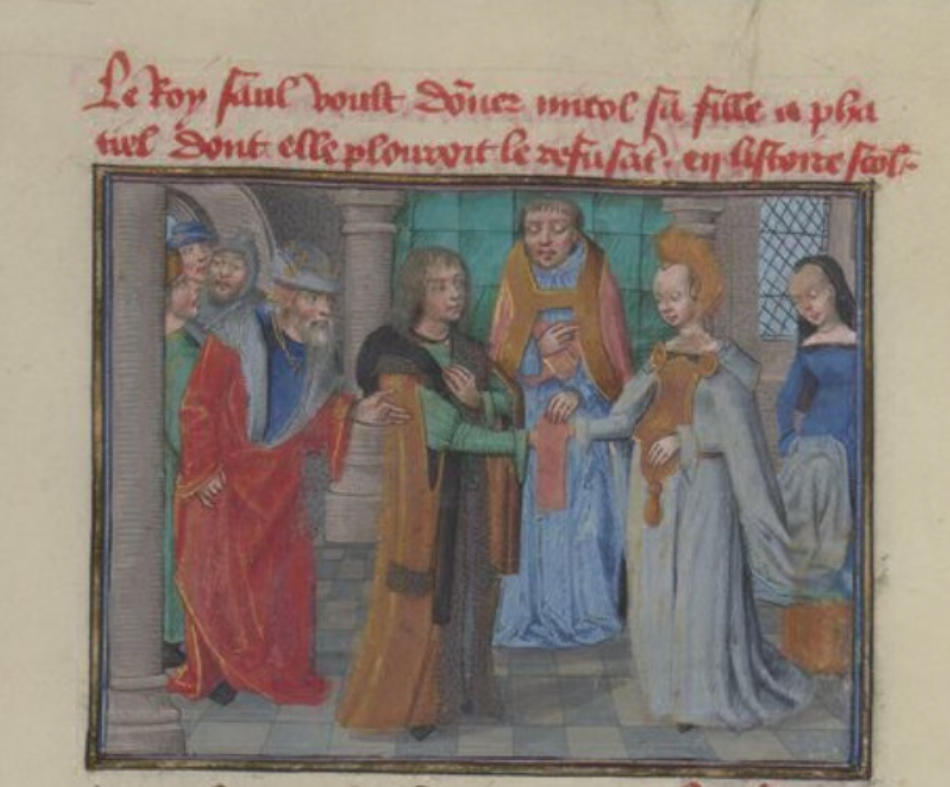 Le Roy saul voult dōner micol sa fille a pha
tiel dont elle plouroit le refusāt. en listoire scol.